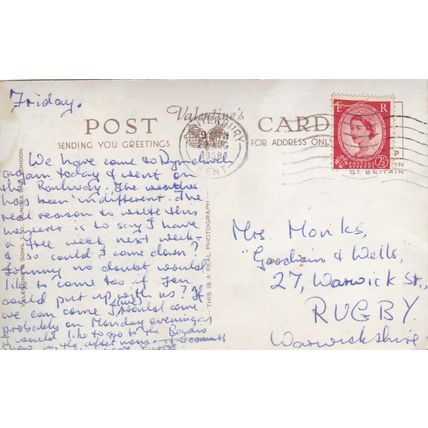 Friday.
Valentine's
POST CARD
SENDING YOU GREETINGS
FOR ADDRESS ONLY
CANTERBURY
AUG
1958
KENT
E R
2½
GT. BRITAIN
THIS IS A REAL PHOTOGRAPH
VALENTINE & SONS LTD. DUNDEE AND LONDON
We have come to Dymchurch
again today & went on
the Railway. The weather
has been indifferent. The
real reason to write this
however is to say I have
a free week next week
& so could I come down?
no doubt would
like to come too if you
could put up with us? If
we can come I should come
probably on Monday evening
I should like to go to the
in the afternoons.
Mrs Monks,
"Goodwin & Wells",
27, Warwick St.,
RUGBY.
Warwickshire.